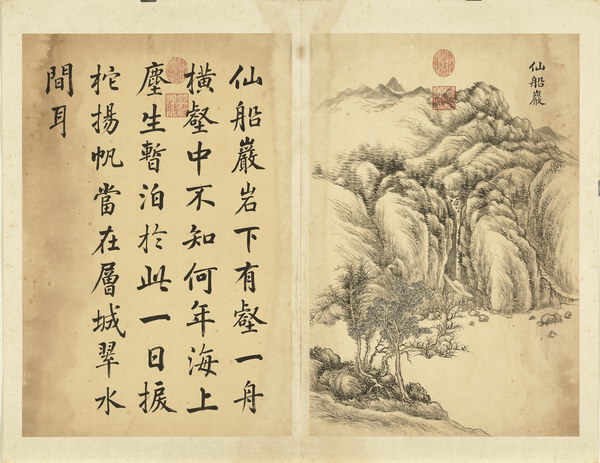 仙船巖
仙船巖岩下有壑一舟
橫壑中不知何年海上
塵生暫泊於此一日捩
柁揚帆當在層城翠水
間耳